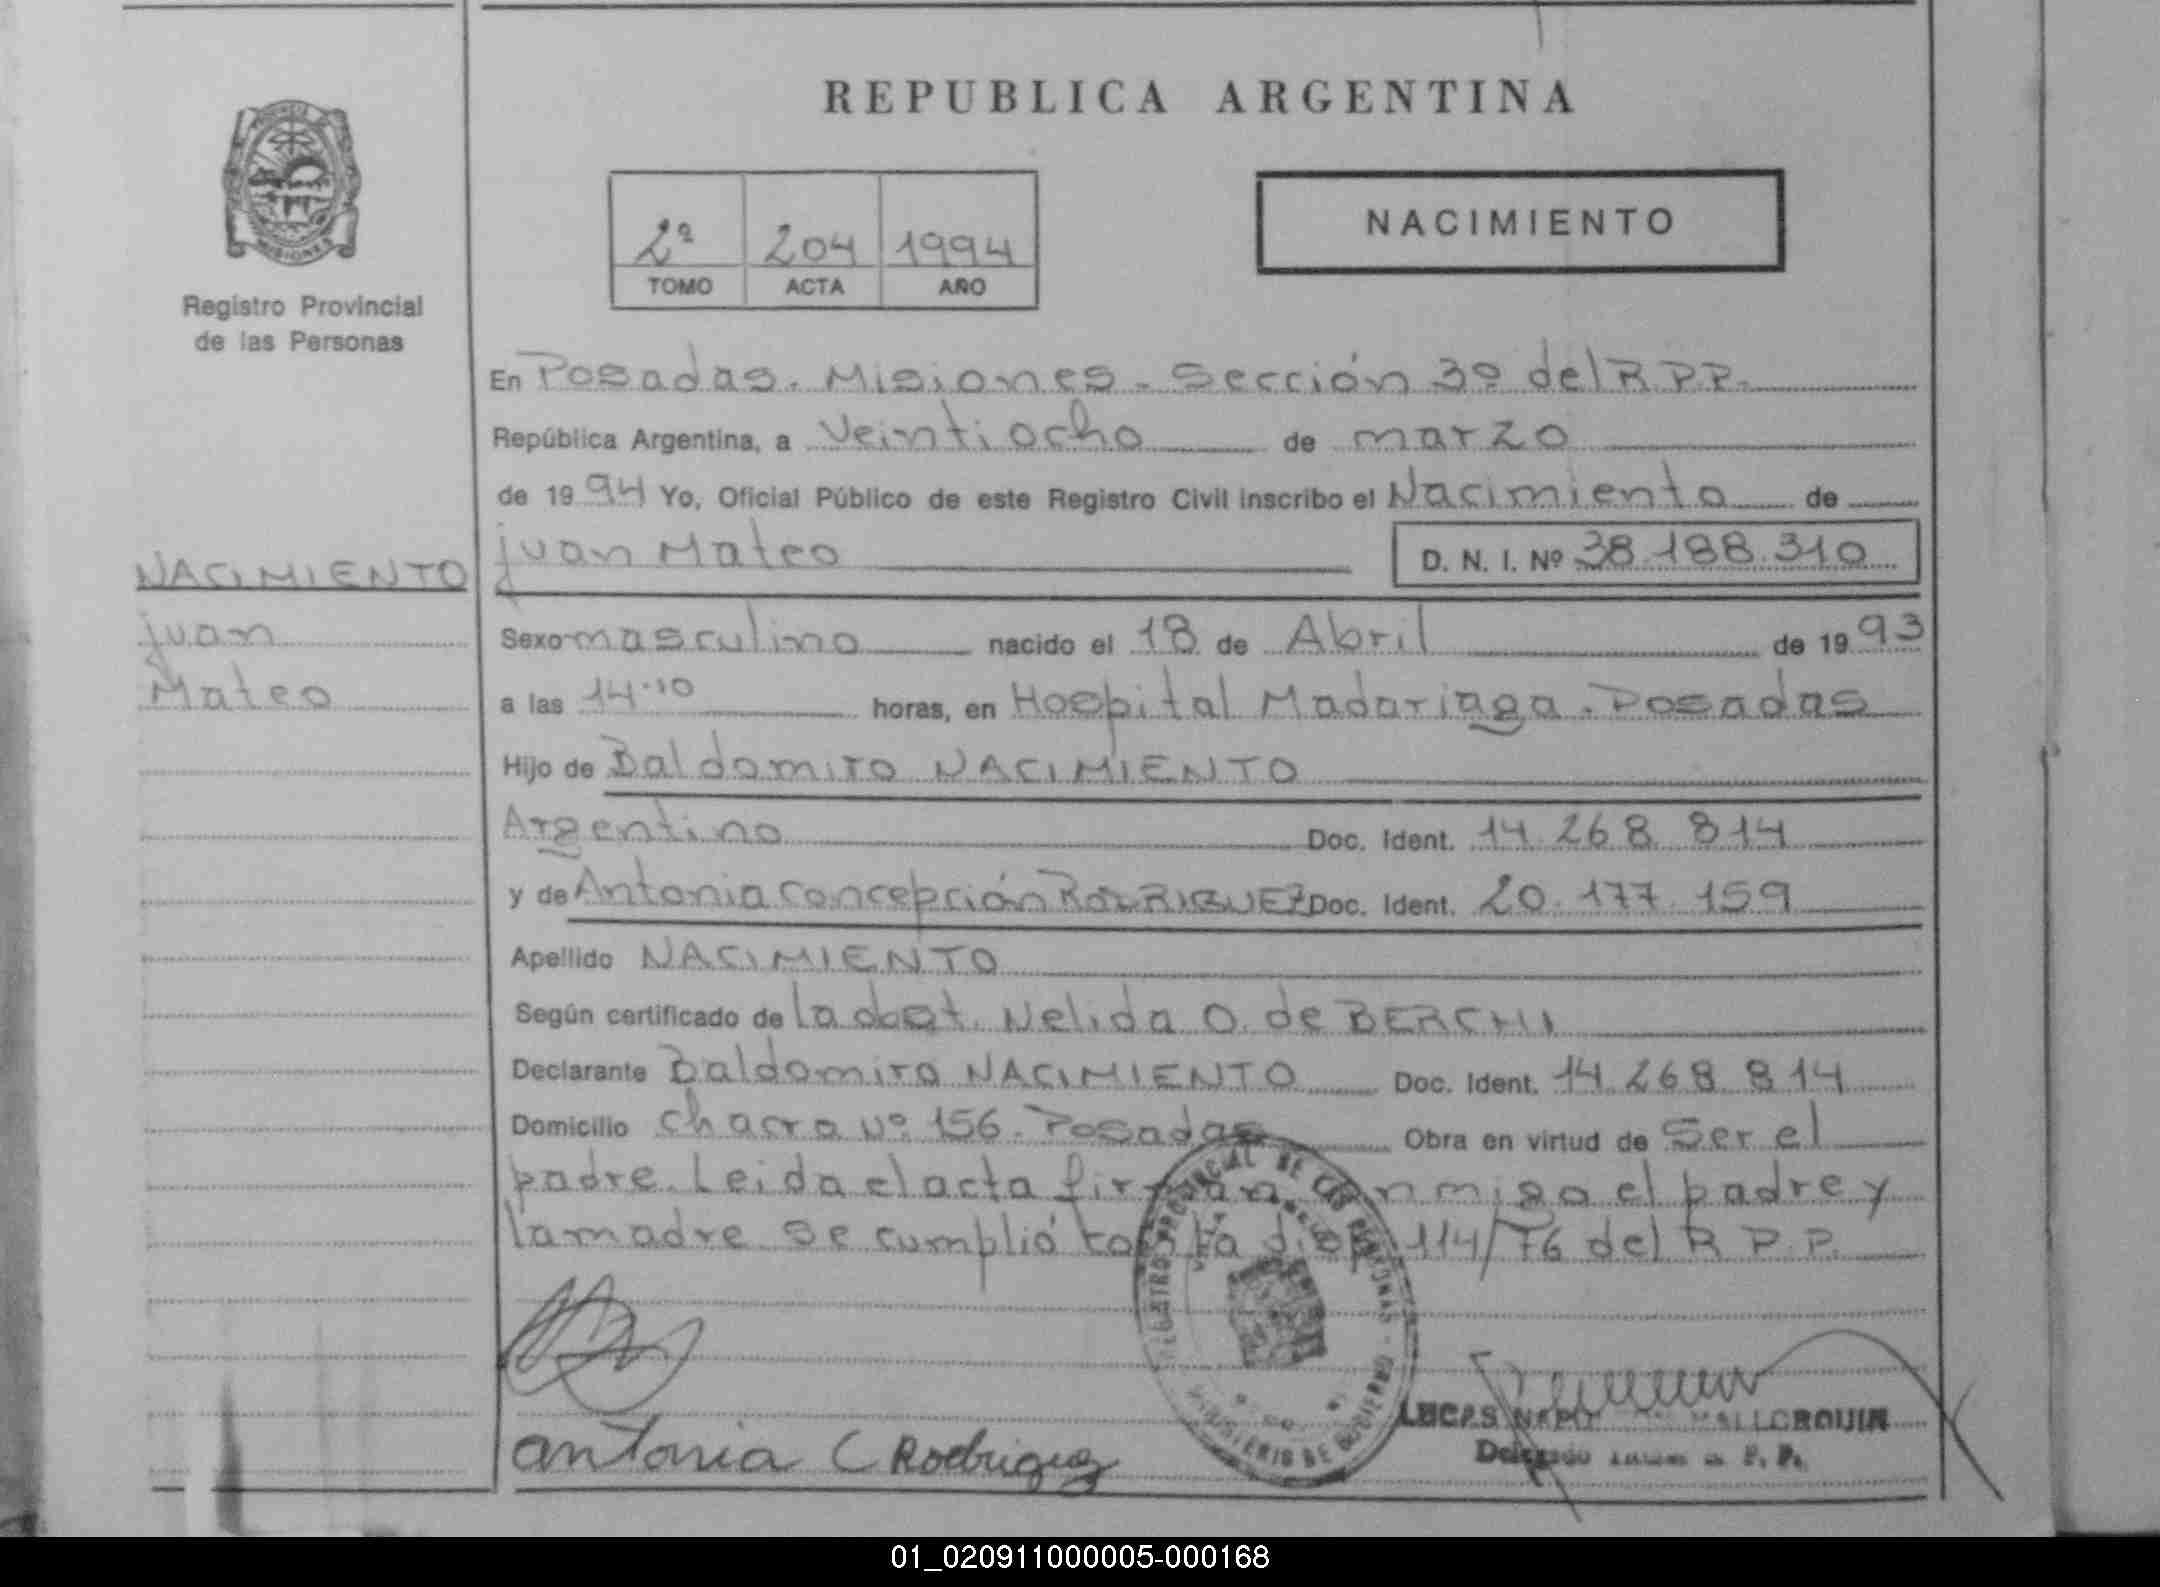 REPUBLICA ARGENTINA
MISIONES
Registro Provincial
de las Personas
2º 204 1994
TOMO ACTA AÑO
NACIMIENTO
En Posadas. Misiones. Sección 3º del R.P.P.
República Argentina, a Veintiocho de marzo
de 1994 Yo, Oficial Público de este Registro Civil inscribo el Nacimiento de
NACIMIENTO
Juan
Mateo
Juan Mateo D. N. I. Nº 38.188.310
Sexo masculino nacido el 18 de Abril de 1993
a las 14.10 horas, en Hospital Madariaga. Posadas
Hijo de Baldomiro NACIMIENTO
Argentino Doc. Ident. 14.268.814
y de Antonia Concepción RODRIGUEZ Doc. Ident. 20.177.159
Apellido NACIMIENTO
Según certificado de la obst. Nelida O. de BERCHI
Declarante Baldomiro NACIMIENTO Doc. Ident. 14.268.814
Domicilio Chacra Nº 156. Posadas Obra en virtud de Ser el
padre. Leida el acta firman conmigo el padre y
la madre se cumplió con la disp 114/76 del R.P.P.
REGISTRO PROVINCIAL DE LAS PERSONAS
MINISTERIO DE GOBIERNO
Antonia C Rodriguez
LUCAS MALLORQUIN